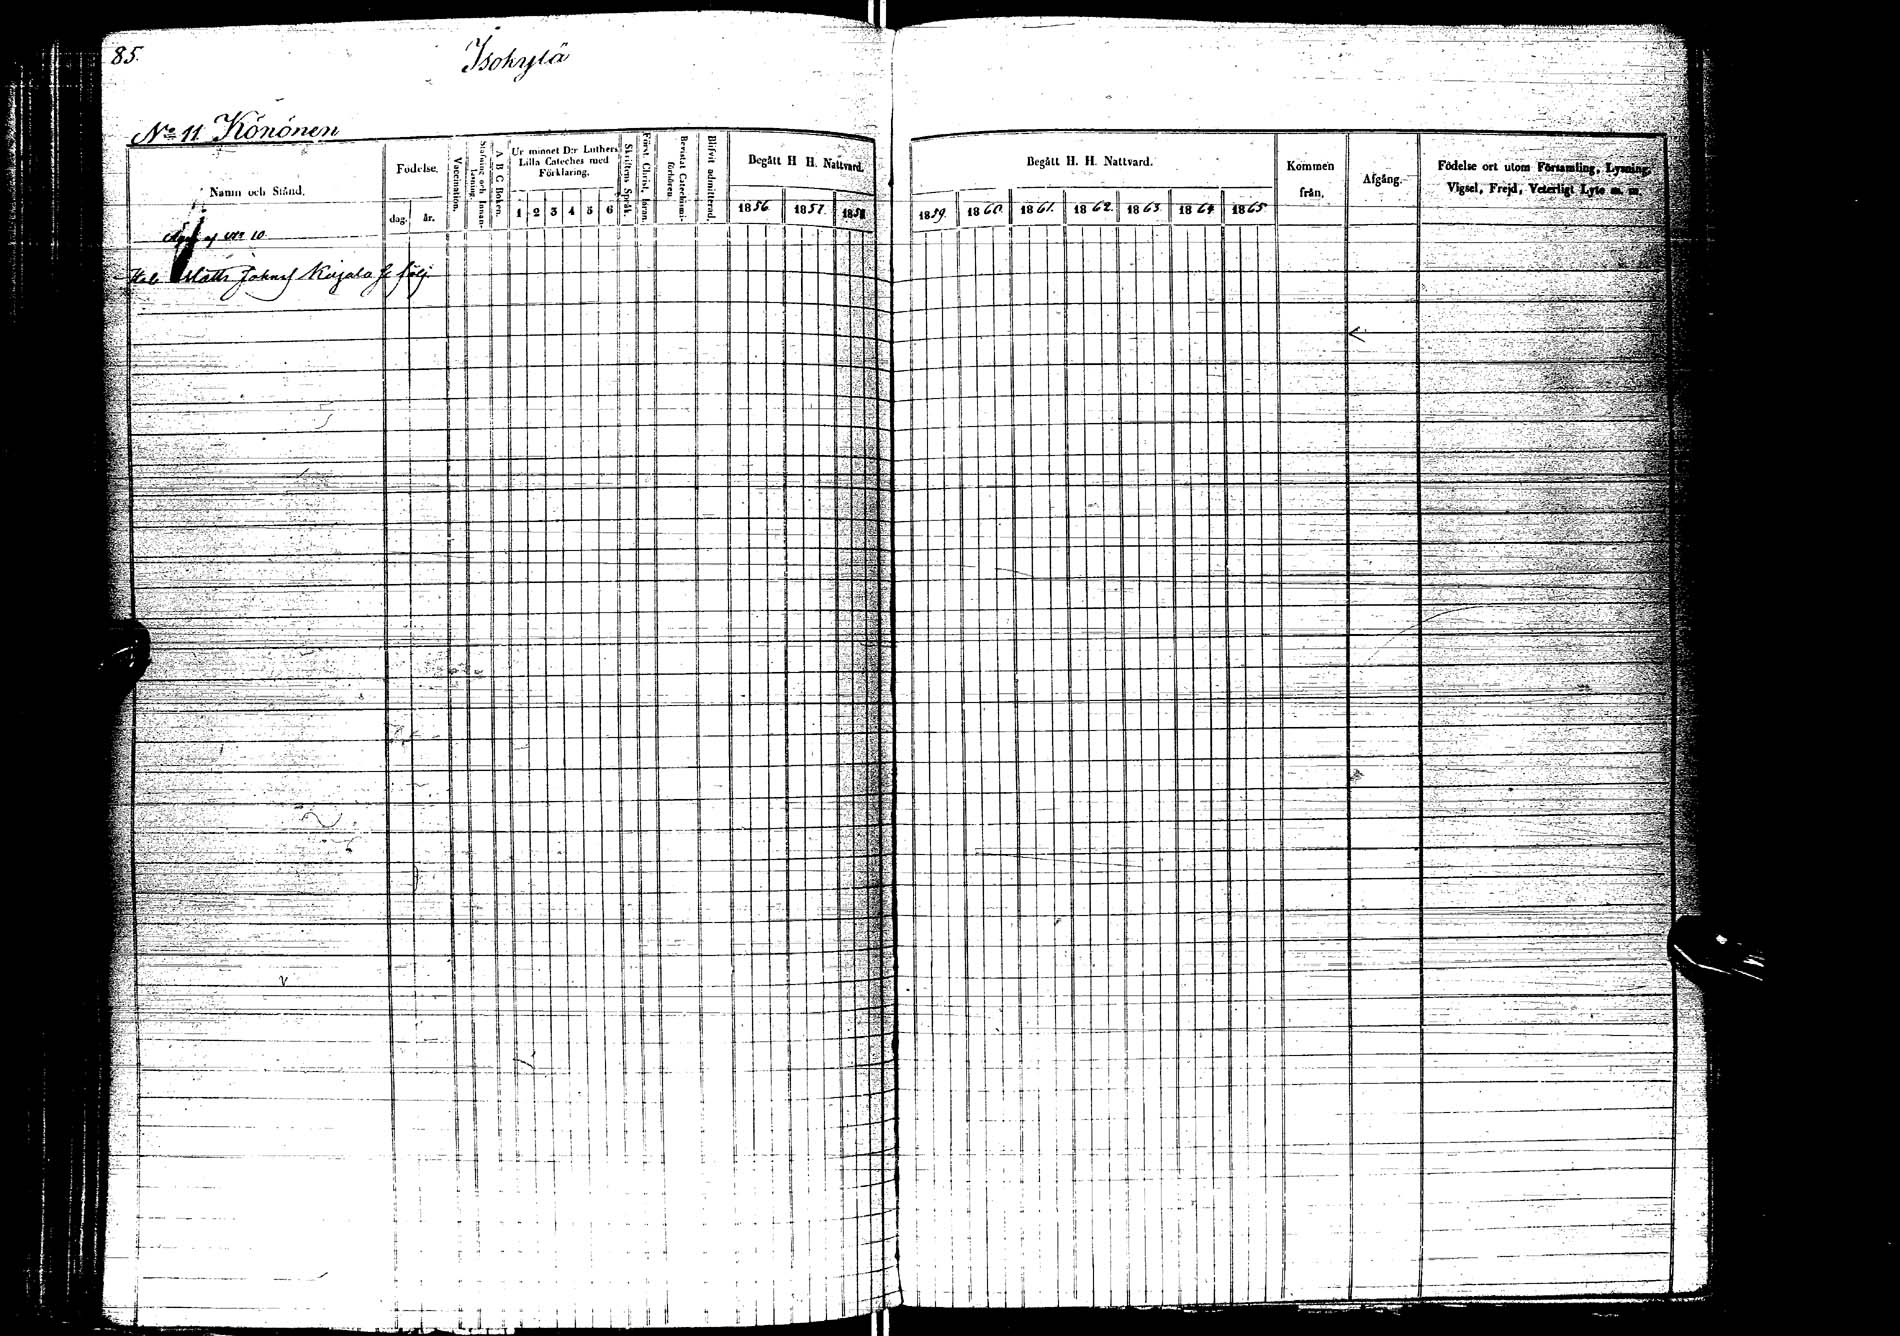 85.
Isokylä
No 11. Könönen
Namn och Stånd.
Födelse.
dag. år.
Vaccination.
Stafning och Innanläsning.
A B C Boken.
Ur minnet D:r Luthers Lilla Cateches med Förklaring.
1 2 3 4 5 6
Skriftens Språk.
Först. Christ. läran.
Bevistat Catechismiförhören.
Blifvit admitterad.
Begått H H. Nattvard.
1856. 1857. 1858
Begått H. H. Nattvard.
1859. 1860. 1861. 1862. 1863. 1864. 1865.
Kommen från.
Afgång.
Födelse ort utom Församling, Lysning, Vigsel, Frejd, Veterligt Lyte m. m.
af No 10.
Matts Johansf Karjala se följ